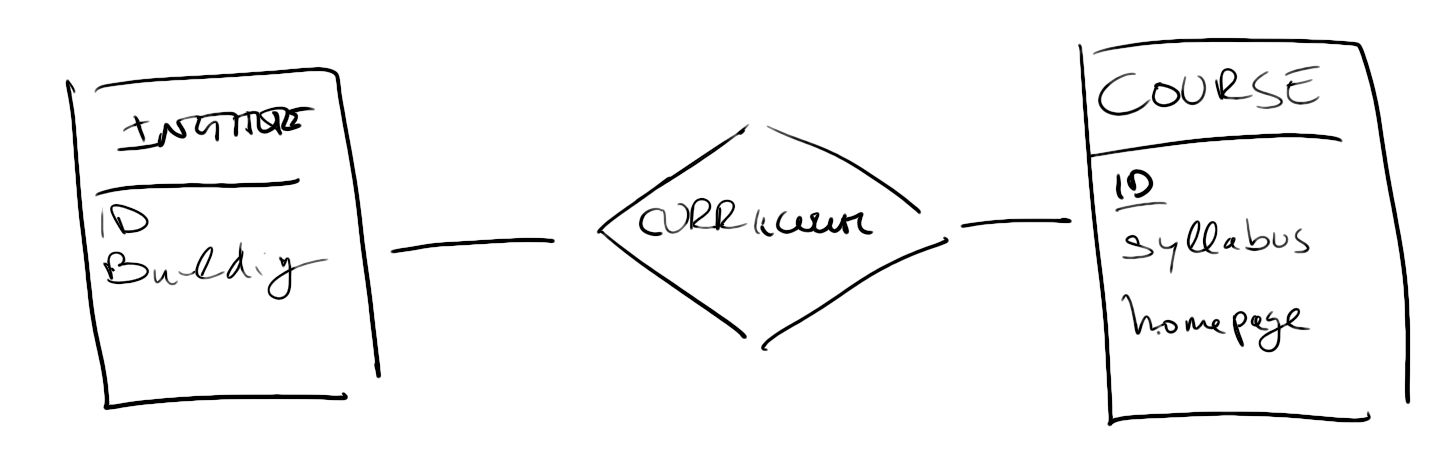 INSTITUTE
ID
Building
CURRICULUM
COURSE
ID
syllabus
homepage